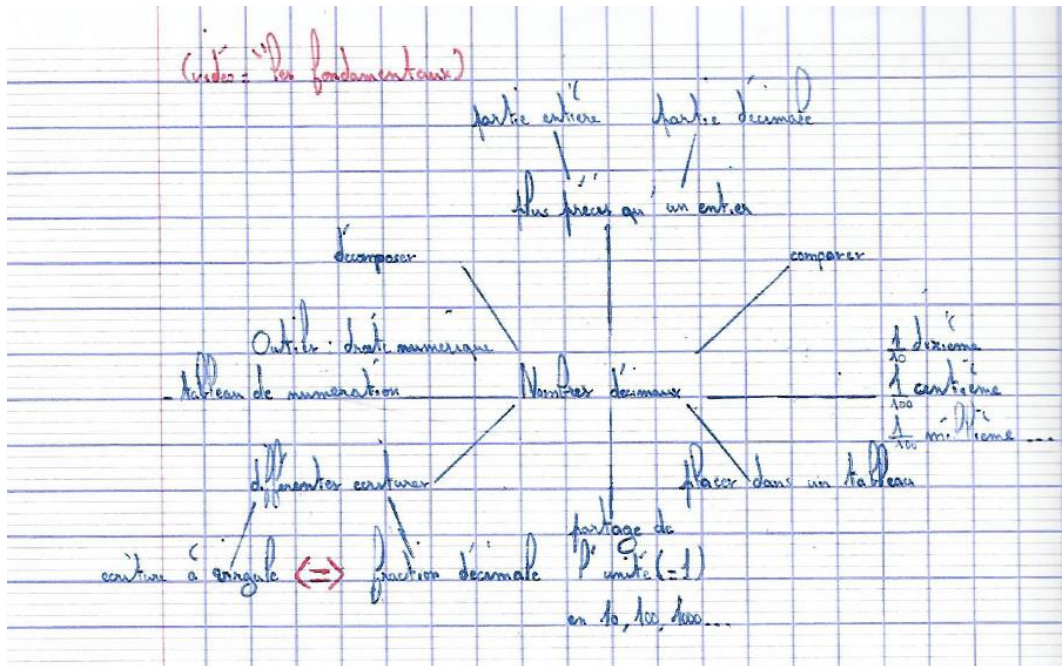 (vidéo = "les fondamentaux)
partie entière partie décimale
plus précis qu'un entier
décomposer comparer
Outils : droite numérique
tableau de numération
Nombres décimaux
1/10 dixième
1/100 centième
1/100 millième ...
différentes écritures
placer dans un tableau
partage de
l'unité (=1)
en 10, 100, 1000...
écriture à virgule <=> fraction décimale